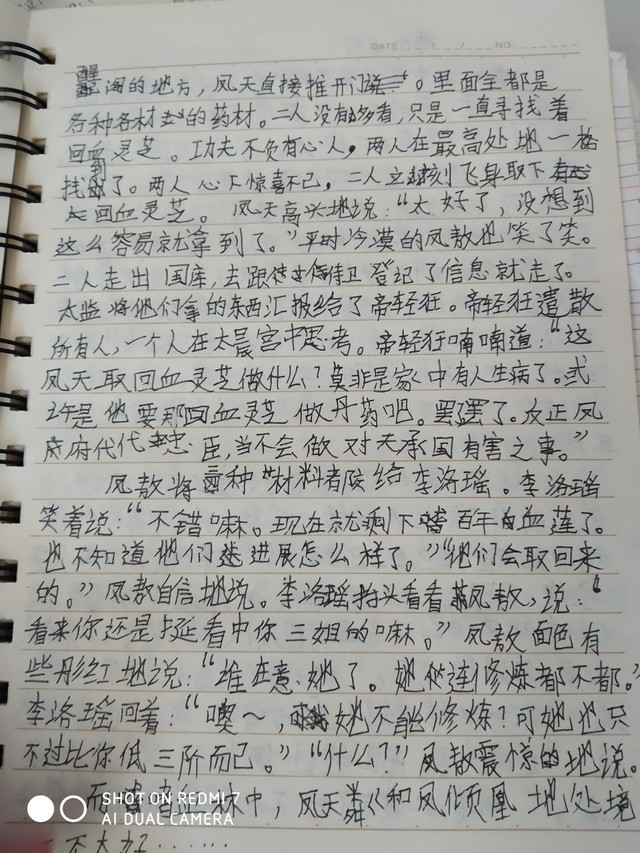 DATE / / NO.
醒阁的地方，凤天直接推开门。里面全都是
各种各材的药材。二人没有多看，只是一直寻找着
回血灵芝。功夫不负有心人，两人在最高处地一格
找到了。两人心下惊喜不已，二人立刻飞身取下
回血灵芝。凤天高兴地说：“太好了，没想到
这么容易就拿到了。”平时冷漠的凤敖也笑了笑。
二人走出国库，去跟侍卫登记了信息就走了。
太监将他们拿的东西汇报给了帝轻狂。帝轻狂遣散
所有人，一个人在太晨宫中思考。帝轻狂喃喃道：“这
凤天取回血灵芝做什么？莫非是家中有人生病了。或
许是他要那回血灵芝做丹药吧。罢了。反正凤
府代代忠臣，当不会做对天承国有害之事。”
凤敖将两种材料都给李洛瑶。李洛瑶
笑着说：“不错嘛。现在就剩下百年血莲了。
也不知道他们进展怎么样了。”“他们会取回来
的。”凤敖自信地说。李洛瑶抬头看看凤敖，说：“
看来你还是挺看中你三姐的嘛。”凤敖面色有
些彤红地说：“谁在意她了。她连修炼都不都。”
李洛瑶回着：“噢～，她不能修炼？可她也只
不过比你低三阶而已。”“什么？”凤敖震惊的地说。
而中，凤天粦和凤倾凰地处境
不太好……
SHOT ON REDMI 7
AI DUAL CAMERA